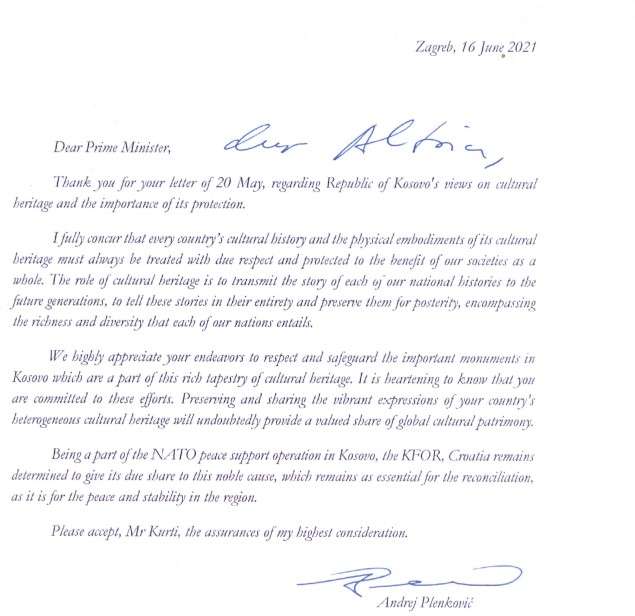 Zagreb, 16 June 2021
Dear Prime Minister, dear Albin,
Thank you for your letter of 20 May, regarding Republic of Kosovo's views on cultural
heritage and the importance of its protection.
I fully concur that every country's cultural history and the physical embodiments of its cultural
heritage must always be treated with due respect and protected to the benefit of our societies as a
whole. The role of cultural heritage is to transmit the story of each of our national histories to the
future generations, to tell these stories in their entirety and preserve them for posterity, encompassing
the richness and diversity that each of our nations entails.
We highly appreciate your endeavors to respect and safeguard the important monuments in
Kosovo which are a part of this rich tapestry of cultural heritage. It is heartening to know that you
are committed to these efforts. Preserving and sharing the vibrant expressions of your country's
heterogeneous cultural heritage will undoubtedly provide a valued share of global cultural patrimony.
Being a part of the NATO peace support operation in Kosovo, the KFOR, Croatia remains
determined to give its due share to this noble cause, which remains as essential for the reconciliation,
as it is for the peace and stability in the region.
Please accept, Mr Kurti, the assurances of my highest consideration.
Andrej Plenković